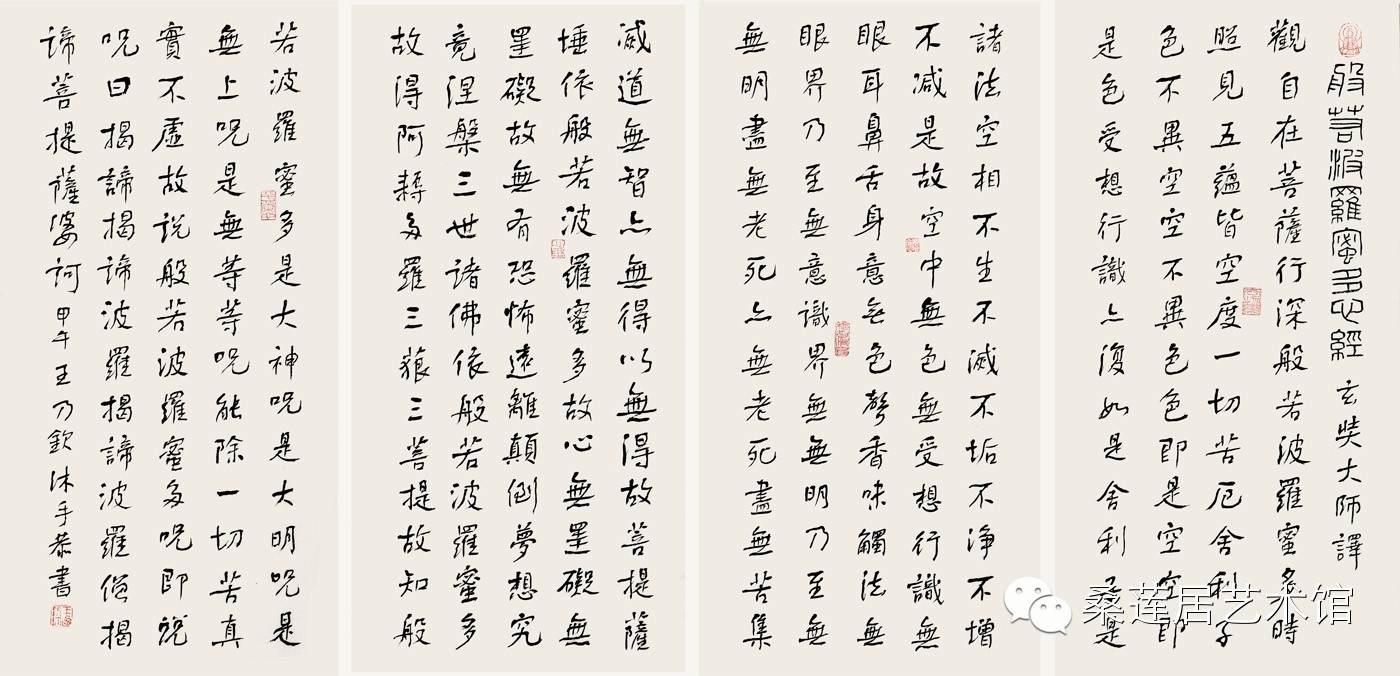 般若波羅蜜多心經 玄奘大師譯
觀自在菩薩行深般若波羅蜜多時
照見五蘊皆空度一切苦厄舍利子
色不異空空不異色色即是空空即
是色受想行識亦復如是舍利子是
諸法空相不生不滅不垢不淨不增
不減是故空中無色無受想行識無
眼耳鼻舌身意無色聲香味觸法無
眼界乃至無意識界無無明乃至無
無明盡無老死亦無老死盡無苦集
滅道無智亦無得以無得故菩提薩
埵依般若波羅蜜多故心無罣礙無
罣礙故無有恐怖遠離顛倒夢想究
竟涅槃三世諸佛依般若波羅蜜多
故得阿耨多羅三藐三菩提故知般
若波羅蜜多是大神呪是大明呪是
無上呪是無等等呪能除一切苦真
實不虛故說般若波羅蜜多呪即說
呪曰揭諦揭諦波羅揭諦波羅僧揭
諦菩提薩婆訶 甲午王乃欽沐手恭書
桑莲居艺术馆